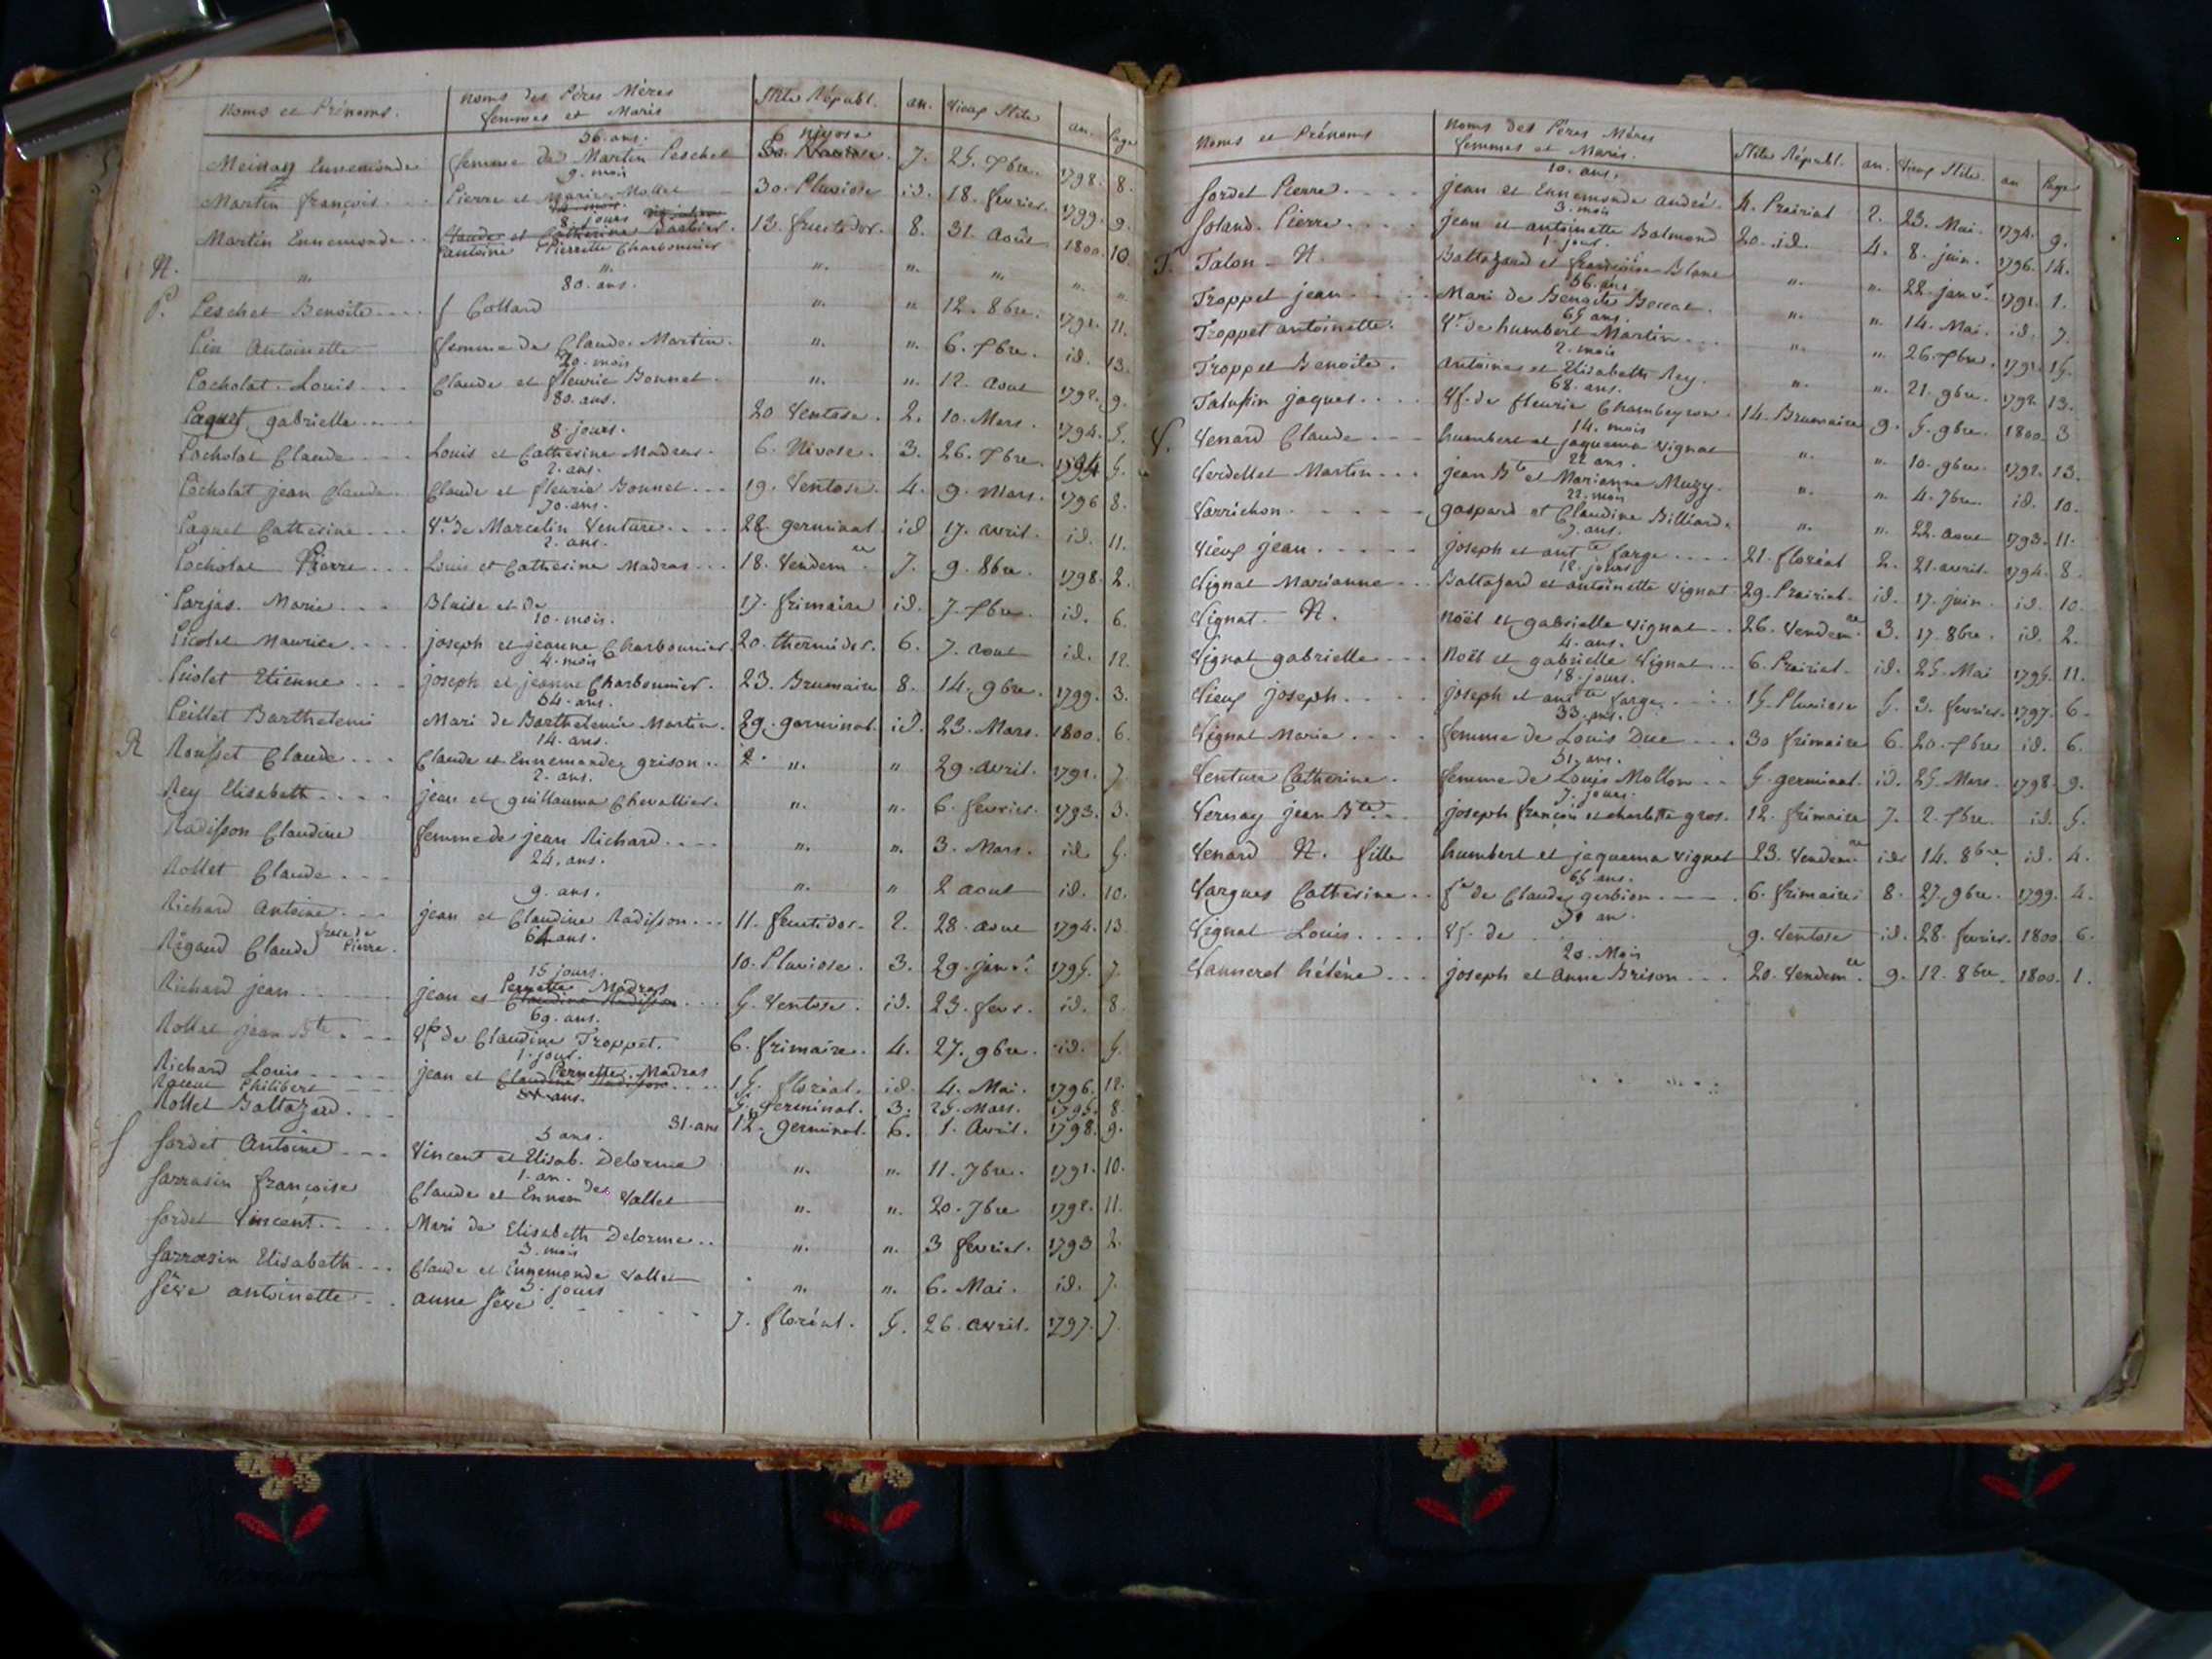 Noms et Prénoms. noms des Péres Méres femmes et Maris Stile Républ. an. Vieux Stile an. Page
56. ans. 6 nivose
Meinay Ennemonde femme de Martin Peschet 7. 25. 7bre. 1798. 8.
9. mois
Martin françois Pierre et Marie Mollet 30. Pluviose id. 18. fevrier. 1799. 9.
8. jours
Martin Ennemonde Claude et Catherine Barbier. 13. fructidor. 8. 31. Août 1800. 10.
antoine Pierrette Charbonnier
N. " " " " " " "
80. ans.
P. Peschet Benoite f Collard " " 12. 8bre. 1791. 11.
Pin Antoinette femme de Claude Martin. " " 6. 7bre. id. 13.
20. mois
Pacholat Louis Claude et fleurie Bonnet. " " 12. Aout 1792. 9.
80. ans.
Paquet gabrielle 20 Ventose. 2. 10. Mars. 1794. 5.
8. jours.
Pacholat Claude Louis et Catherine Madras. 6. Nivose. 3. 26. 7bre. 1794 5.
2. ans.
Pacholat jean Claude Claude et fleurie Bonnet 19. Ventose. 4. 9. Mars. 1796 8.
70. ans.
Paquet Catherine Ve. de Marcelin Venture 28. germinal. id 17. avril. id. 11.
2. ans.
Pacholat Pierre Louis et Catherine Madras 18. Vendem re 7. 9. 8bre. 1798. 2.
Parjas. Marie Blaise et de 17. frimaire id. 7. 7bre. id. 6.
10. mois.
Piolet Maurice joseph et jeanne Charbonnier 20. thermidor. 6. 7. Aout id. 12.
4. mois
Piolet Etienne joseph et jeanne Charbonnier. 23. Brumaire 8. 14. 9bre. 1799. 3.
54. ans.
Peillet Barthelemi Mari de Barthelemie Martin. 29. germinal. id. 23. Mars. 1800. 6.
14. ans.
R Rousset Claude Claude et Ennemonde grison " " 29. avril. 1791. 7
2. ans.
Rey Elisabeth jean et guillauma Chevallier. " " 6. fevrier. 1793. 3.
Radisson Claudine femme de jean Richard " " 3. Mars. id. 5.
24. ans.
Rollet Claude " " 2 aout id. 10.
9. ans.
Richard Antoine jean et Claudine Radisson 11. fructidor. 2. 28. aout 1794. 13
64 ans.
Rigaud Claude frere de Pierre. 10. Pluviose. 3. 29. janv. 1795. 7.
15 jours.
Pernette Madras
Richard jean jean et Claudine Radisson 5. Ventose. id. 23. fevr. id. 8.
69. ans.
Rollet jean Bte Vf de Claudine Troppet. 6. frimaire. 4. 27. 9bre. id. 5.
1. jour.
Pernette Madras
Richard Louis jean et Claudine Radisson 15. floréal. id. 4. Mai. 1796. 12.
Philibert 5. Germinal. 3. 25. Mars. 1795. 8.
ans.
Rollet Baltazard 31. ans 12. germinal. 6. 1. Avril. 1798. 9.
5 ans.
S Sordet Antoine Vincent et Elisab. Delorme " " 11. 7bre. 1791. 10.
1. an.
Sarrasin françoise Claude et Ennem de Vallet " " 20. 7bre 1792. 11.
Sordet Vincent Mari de Elisabeth Delorme " " 3 fevrier. 1793 2.
3. mois
Sarrasin Elisabeth Claude et Ennemonde Vallet " " 6. Mai. id. 7.
5. jours
Séve antoinette anne Séve 7. floréal. 5. 26. avril. 1797. 7.
Noms et Prénoms Noms des Péres Méres femmes et Maris. Stile Républ. an. Vieux Stile. an Page
10. ans.
Sordet Pierre jean et Ennemonde andré. 4. Prairial 2. 23. Mai. 1794. 9.
3. mois
Soland. Pierre jean et antoinette Balmond 20. id. 4. 8. juin. 1796. 14.
1. jour.
T. Talon N. Baltazard et françoise Blanc " " 22. janv. 1791. 1.
56. ans
Troppet jean Mari de Benoite " " 14. Mai. id. 7.
65 ans.
Troppet antoinette. Ve. de humbert Martin " " 26. 7bre. 1791. 15.
2. mois
Troppet Benoite. antoine et Elisabeth Rey. " " 21. 9bre. 1792. 13.
68. ans.
jaques Vf. de fleurie Chambeyron. 14. Brumaire 9. 5. 9bre. 1800. 3
14. mois
V. Venard Claude humbert et jaquema Vignat " " 10. 9bre. 1792. 13.
22 ans.
Verdellet Martin jean Bte et Marianne Muzy. " " 4. 7bre. id. 10.
22. mois
Varrichon gaspard et Claudine Billiard. " " 22. aout 1793. 11.
7. ans.
Vieux jean joseph et ant te farge 21. floréal 2. 21. avril. 1794. 8.
18. jours
Vignat Marianne Baltazard et antoinette Vignat 29. Prairial. id. 17. juin. id. 10.
Vignat. N. Noël et gabrielle Vignat 26. Vendem re. 3. 17. 8bre. id. 2.
4. ans.
Vignat gabrielle Noël et gabrielle Vignat 6. Prairial. id. 25. Mai 1795. 11.
18. jours.
Vieux joseph joseph et ant te farge 15. Pluviose 5. 3. fevrier. 1797. 6.
33. ans.
Vignat Marie femme de Louis Duc 30 frimaire 6. 20. 7bre id. 6.
51. ans.
Venture Catherine. femme de Louis Mollon 5. germinal. id. 25. Mars. 1798. 9.
7. jours.
Vernay jean Bte joseph françois et charlotte gros. 12. frimaire 7. 2. 7bre. id. 5.
Venard N. fille humbert et jaquema Vignat 23. Vendem re id. 14. 8bre. id. 4.
65 ans.
Vargues Catherine fe de Claude gerbion 6. frimaire 8. 27. 9bre. 1799. 4.
an.
Vignat Louis Vf. de 9. Ventose id. 28. fevrier. 1800. 6.
20. Mois
Vanneret héléne joseph et Anne Brison 20. Vendem re. 9. 12. 8bre 1800. 1.